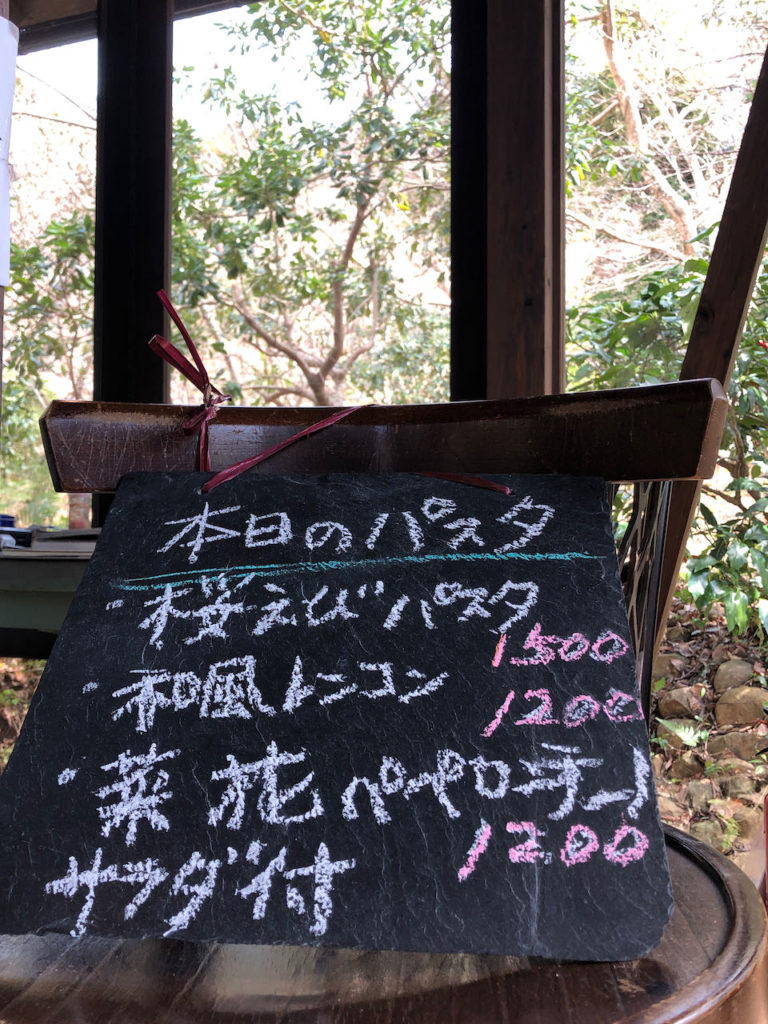 本日のパスタ
・桜えびパスタ
1500
・和風レンコン
1200
・菜花ペペロンチーノ
1200
サラダ付